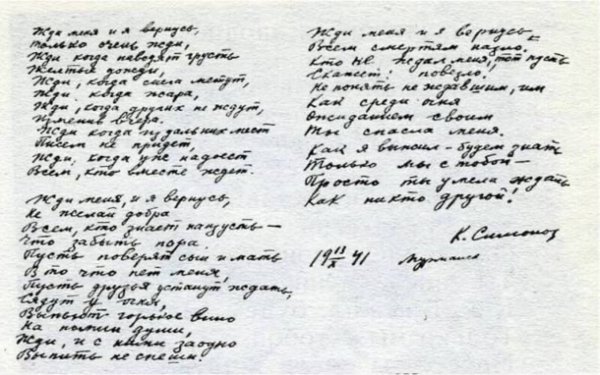 Жди меня и я вернусь,
Только очень жди,
Жди когда наводят грусть
Желтые дожди,
Жди, когда снега метут,
Жди когда жара,
Жди, когда других не ждут,
Изменив вчера.
Жди когда из дальних мест
Писем не придет,
Жди, когда уж надоест
Всем, кто вместе ждет.
Жди меня, и я вернусь,
Не желай добра
Всем, кто знает наизусть —
Что забыть пора.
Пусть поверят сын и мать
В то что нет меня,
Пусть друзья устанут ждать,
Сядут у огня,
Выпьют горькое вино
На помин души,
Жди, и с ними заодно
Выпить не спеши!
Жди меня и я вернусь
Всем смертям назло.
Кто не ждал меня, тот пусть
Скажет: повезло.
Не понять не ждавшим, им
Как среди огня
Ожиданием своим
Ты спасла меня.
Как я выжил - будем знать
Только мы с тобой —
Просто ты умела ждать
Как никто другой!
К. Симонов
19 13/X 41 Мурманск